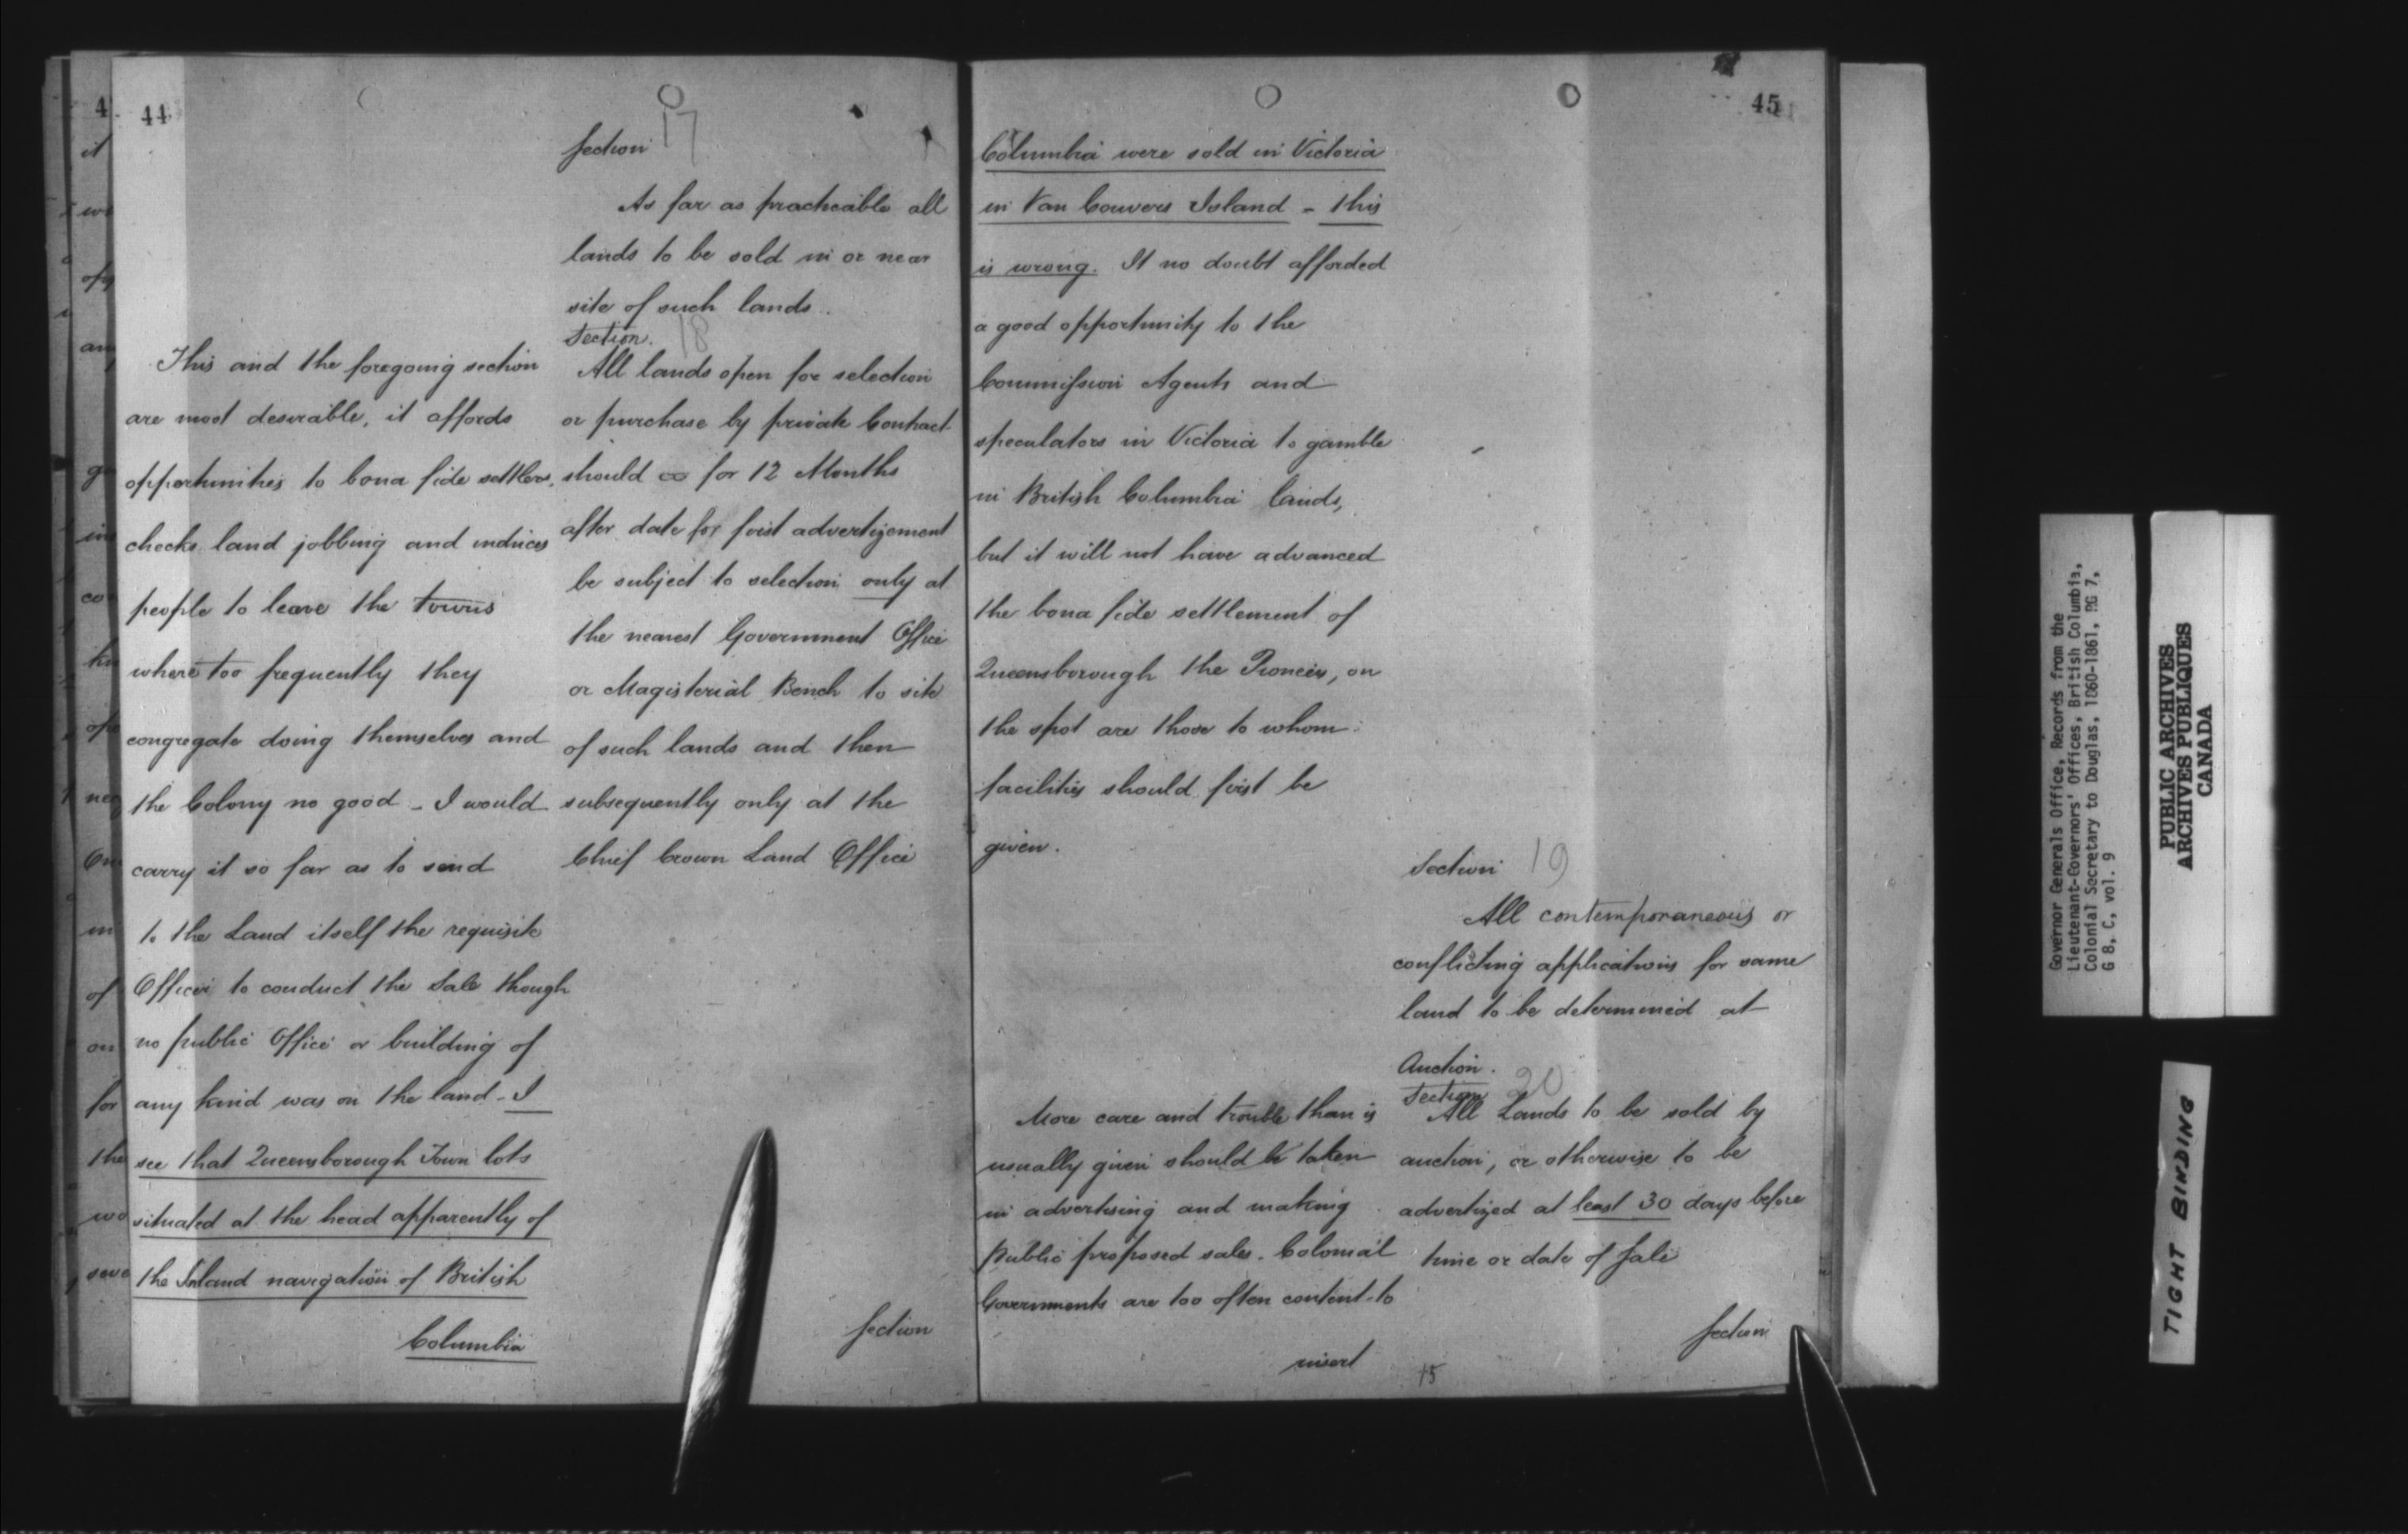 44
This and the foregoing section
are most desirable, it affords
opportunities to bona fide settlers,
checks land jobbing and induces
people to leave the towns
where too frequently they
congregate doing themselves and
the Colony no good - I would
carry it so far as to send
to the Land itself the requisite
Officer to conduct the Sale though
no public Office or building of
any kind was on the land - I
see that Queensborough Town lots
situated at the head apparently of
the Inland navigation of British
Columbia
Section 17
As far as practicable all
lands to be sold in or near
site of such lands.
Section. 18
All lands open for selection
or purchase by private Contract
should for 12 Months
after date for first advertizement
be subject to selection only at
the nearest Government Office
or Magisterial Bench to site
of such lands and then
subsequently only at the
Chief Crown Land Office
Section
45
Columbia were sold in Victoria
in Van Couvers Island - this
is wrong. It no doubt afforded
a good opportunity to the
Commission Agents and
speculators in Victoria to gamble
in British Columbia lands,
but it will not have advanced
the bona fide settlement of
Queensborough the Pioneers, on
the spot are those to whom
facilities should first be
given.
More care and trouble than is
usually given should be taken
in advertising and making
public proposed sales. Colonial
Governments are too often content to
insert
Section 19
All contemporaneous or
conflicting applications for same
land to be determined at
Auction.
Section 20
All Lands to be sold by
auction, or otherwise to be
advertized at least 30 days before
time or date of Sale
Section
15
Governor Generals Office, Records from the
Lieutenant-Governors' Offices, British Columbia,
Colonial Secretary to Douglas, 1860-1861, RG 7,
G 8, C, vol. 9
PUBLIC ARCHIVES
ARCHIVES PUBLIQUES
CANADA
TIGHT BINDING